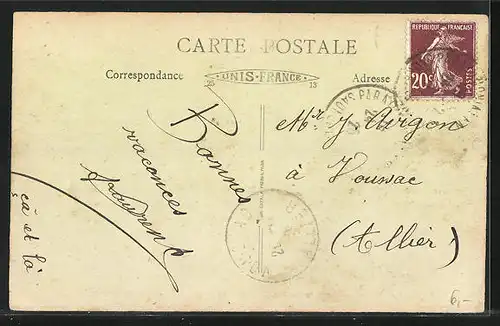 CARTE POSTALE
Correspondance
UNIS-FRANCE
Adresse
REPUBLIQUE FRANÇAISE
20c
POSTES
Bonnes
vacances
Laurent
çà et là
Mr J Avignon
à Voussac
(Allier)
6,-